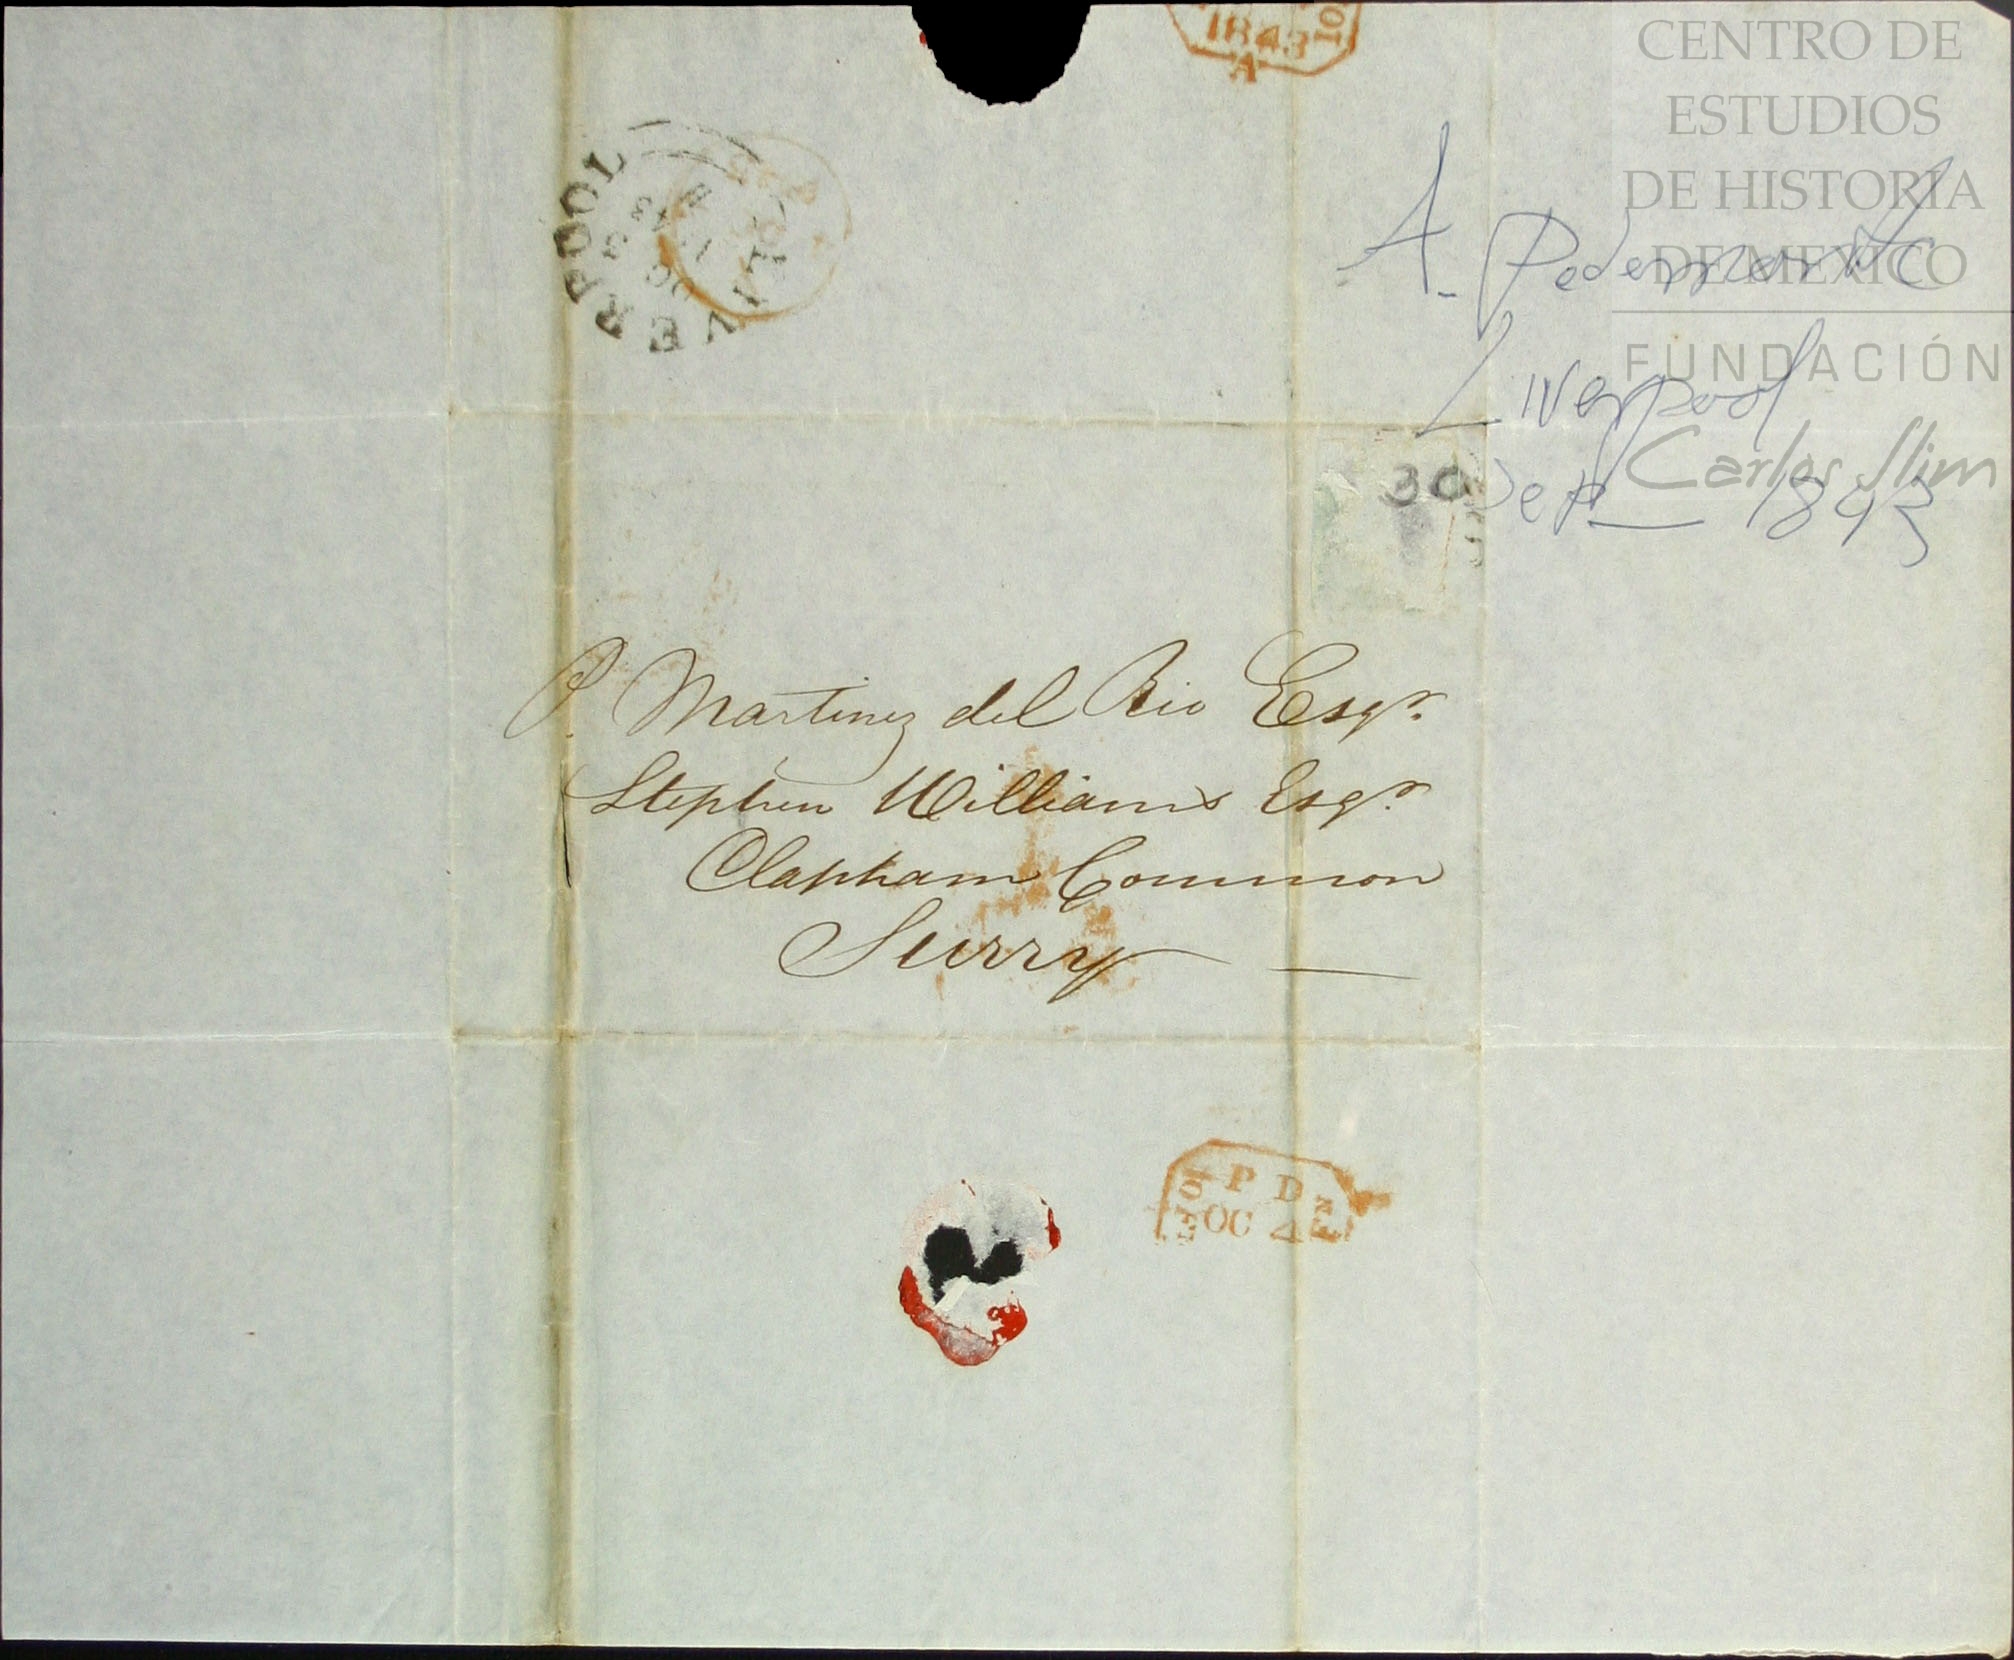 1843
A
CENTRO DE
ESTUDIOS
DE HISTORIA
DE MEXICO
FUNDACIÓN
Carlos Slim
LIVERPOOL
OC
3
43
A.
Liverpool
30 Sep 1843
P. Martinez del Rio Esqr.
Stephen Williams Esqr.
Clapham Common
Surry
P D
OC 4